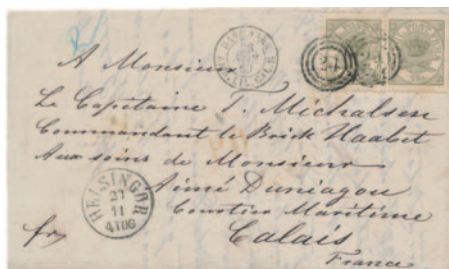 A Monsieur
Le Capitaine T. Michalsen
Commandant le Brick Haabet
Aux soins de Monsieur
Aimé Duniagou
Courtier Maritime
Calais
France
fr
HELSINGÖR
23
11
4 TOG